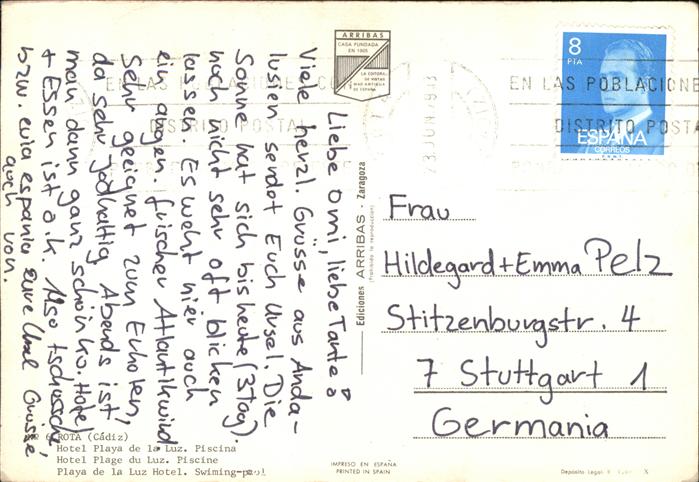 ARRIBAS
CASA FUNDADA
EN 1905
LA EDITORA
DE VISTAS
MAS ANTIGUA
DE ESPAÑA
8
PTA
ESPAÑA
CORREOS
EN LAS POBLACIONES CON
DISTRITO POSTAL
EN LAS POBLACIONE
DISTRITO POSTA
23 JUN 1983
Liebe Omi, liebe Tante
Viele herzl. Grüsse aus Anda-
lusien sendet Euch Ursel. Die
Sonne hat sich bis heute (3 Tag).
noch nicht sehr oft blicken
lassen. Es weht hier auch
ein angen. frischer Atlantikwind
Sehr geeignet zum Erholen,
da sehr jodhaltig Abends ist
man dann ganz schön k.o. Hotel
+ Essen ist o.k. Also tschüssch
bzw. evia espania Eure Ursel Grüsse,
auch von.
Ediciones ARRIBAS - Zaragoza
(Prohibida la reproducción)
Frau
Hildegard + Emma Pelz
Stitzenburgstr. 4
7 Stuttgart 1
Germania
6 ROTA (Cádiz)
Hotel Playa de la Luz. Piscina
Hotel Plage du Luz. Piscine
Playa de la Luz Hotel. Swiming-pool
IMPRESO EN ESPAÑA
PRINTED IN SPAIN
Depósito Legal
X